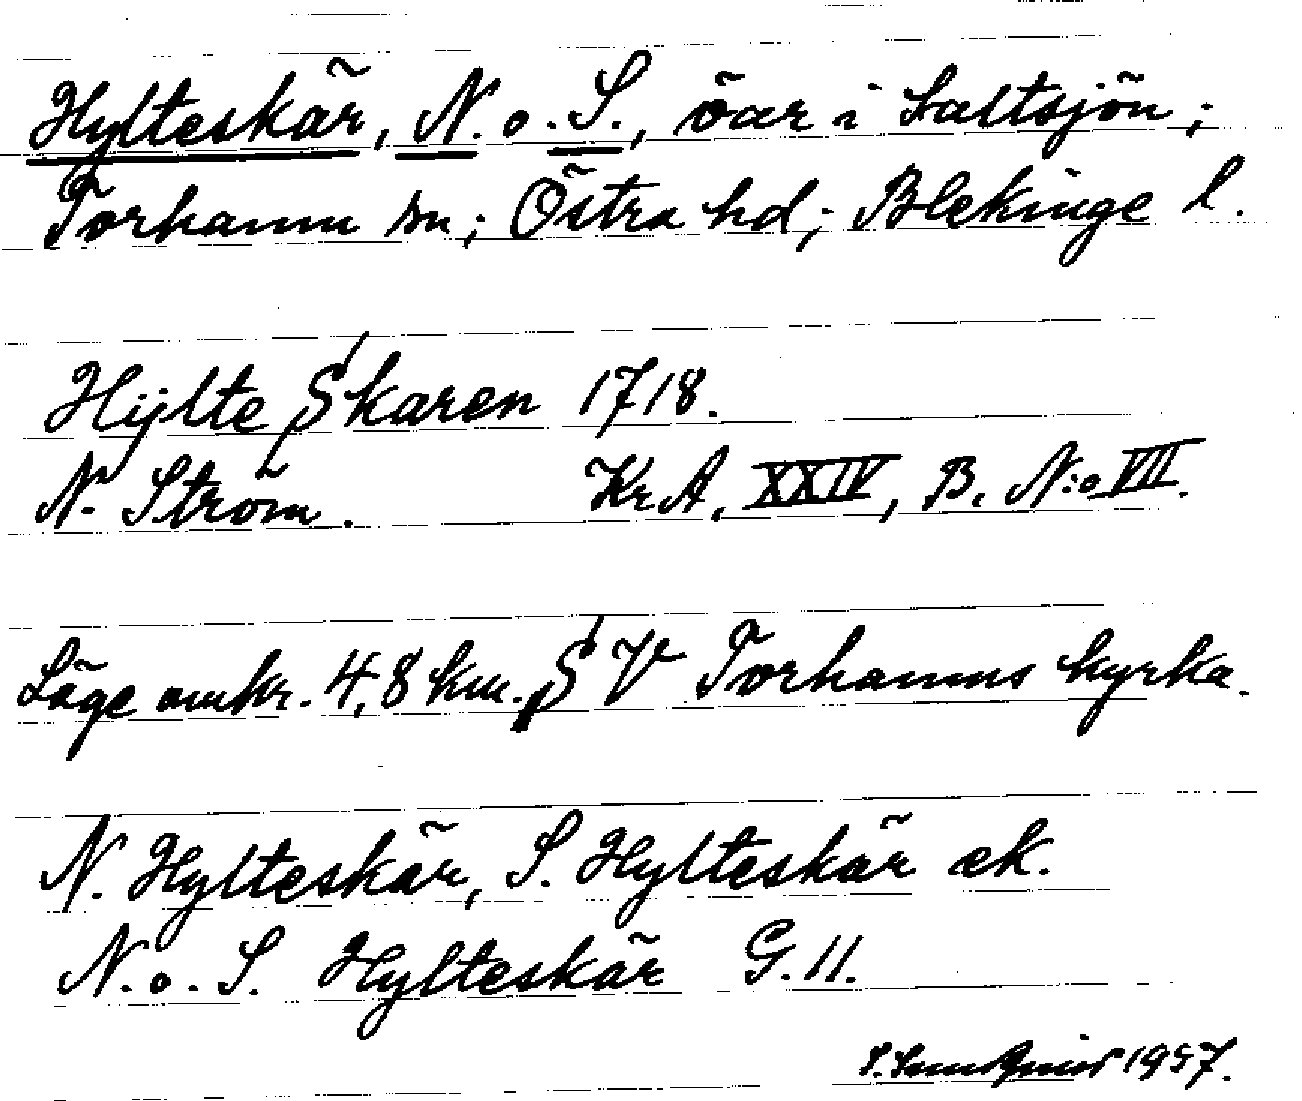 Hylteskär, N. o. S., öar i Saltsjön;
Torhamn sn; Östra hd; Blekinge l.
Hijlte Skaren 1718.
N. Ström. KrA, XXIV, B, N:o VII.
Läge omkr. 4,8 km. S V Torhamns kyrka.
N. Hylteskär, S. Hylteskär ek.
N. o. S. Hylteskär G. 11.
1957.